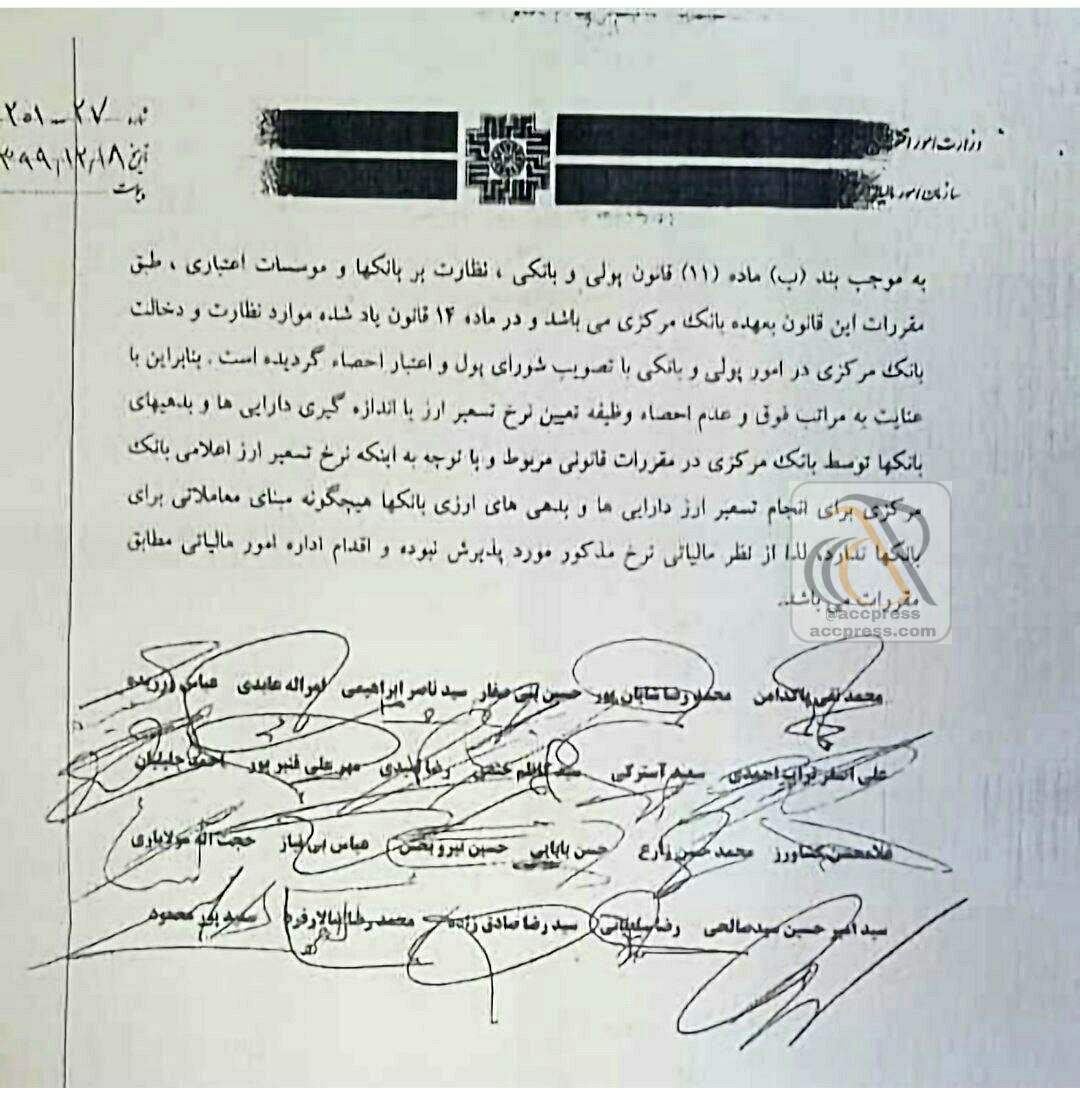 شماره ۲۷-۲۰۱
تاریخ ۳۹۹,۱۲,۱۸
پیوست
وزارت امور اقتصادی
سازمان امور مالیاتی
به موجب بند (ب) ماده (۱۱) قانون پولی و بانکی ، نظارت بر بانکها و موسسات اعتباری ، طبق
مقررات این قانون بعهده بانک مرکزی می باشد و در ماده ۱۴ قانون یاد شده موارد نظارت و دخالت
بانک مرکزی در امور پولی و بانکی با تصویب شورای پول و اعتبار احصاء گردیده است . بنابراین با
عنایت به مراتب فوق و عدم احصاء وظیفه تعیین نرخ تسعیر ارز با اندازه گیری دارایی ها و بدهیهای
بانکها توسط بانک مرکزی در مقررات قانونی مربوط و با توجه به اینکه نرخ تسعیر ارز اعلامی بانک
مرکزی برای انجام تسعیر ارز دارایی ها و بدهی های ارزی بانکها هیچگونه مبنای معاملاتی برای
بانکها ندارد، لذا از نظر مالیاتی نرخ مذکور مورد پذیرش نبوده و اقدام اداره امور مالیاتی مطابق
مقررات می باشد.
@accpress
accpress.com
محمد تقی پاکدامن محمد رضا شایان پور حسین بنی صفار سید ناصر ابراهیمی نمراله عابدی عباس
علی اصغر تراب احمدی سعید آسترکی سید کاظم رضا امیدی مهر علی قنبر پور احمد جلیلیان
غلامحسن کشاورز محمد حسن زارع حسن بابایی حسین نیرو بخش عباس بی نیاز حجت اله مولایاری
سید امیر حسین سیدصالحی رضا سلیمانی سید رضا صادق زاده محمد رضا سالارفرد سعید پور محمود